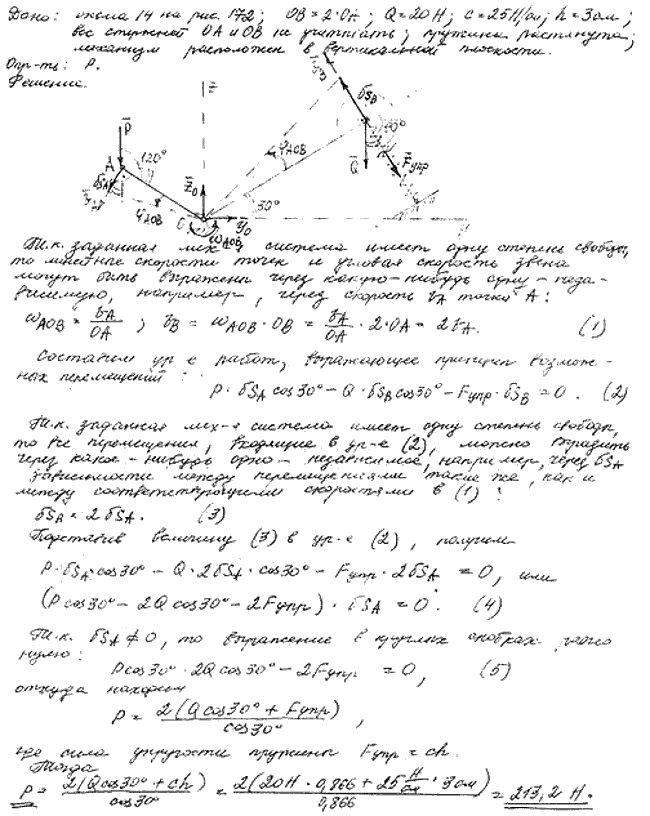 Дано: схема 14 на рис. 172; OB = 2·OA; Q = 20 Н; c = 25 Н/см; h = 3 см;
вес стержней OA и OB не учитывать; пружина растянута;
механизм расположен в вертикальной плоскости.
Опр-ть: P.
Решение.
z
δS_B
P̄
φ_AOB
60°
A
120°
Q̄
F̄упр
δS_A
Z̄₀
φ_AOB
30°
O
Ȳ₀
ω_AOB
Т.к. заданная мех-я система имеет одну степень свободы,
то скорости точек и угловая скорость звена
могут быть выражены через какую-нибудь одну - неза-
висимую, например, через скорость v_A точки A:
ω_AOB = v_A/OA ; v_B = ω_AOB · OB = v_A/OA · 2·OA = 2v_A. (1)
Составим ур-е работ, выражающее принцип возмож-
ных перемещений:
P·δS_A cos30° − Q·δS_B cos30° − Fупр·δS_B = 0. (2)
Т.к. заданная мех-я система имеет одну степень свободы,
то все перемещения, входящие в ур-е (2), можно выразить
через какое-нибудь одно - независимое, например, через δS_A
зависимости между перемещениями такие же, как и
между соответствующими скоростями в (1):
δS_A = 2δS_A. (3)
Подставив величину (3) в ур-е (2), получим
P·δS_A·cos30° − Q·2δS_A·cos30° − Fупр·2δS_A = 0, или
(Pcos30° − 2Qcos30° − 2Fупр)·δS_A = 0. (4)
Т.к. δS_A ≠ 0, то выражение в круглых скобках равно
нулю:
Pcos30° · 2Qcos30° − 2Fупр = 0, (5)
откуда находим
P = 2(Qcos30° + Fупр)/cos30° ,
где сила упругости пружины Fупр = ch.
Тогда
P = 2(Qcos30° + ch)/cos30° = 2(20Н · 0,866 + 25 Н/см · 3см)/0,866 = 213,2 Н.